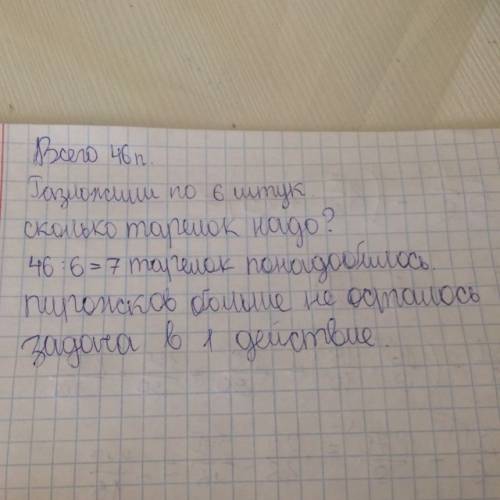 Всего 46 п.
Разложили по 6 штук
сколько тарелок надо?
46:6=7 тарелок понадобилось.
пирожсков больше не осталось
задача в 1 действие.